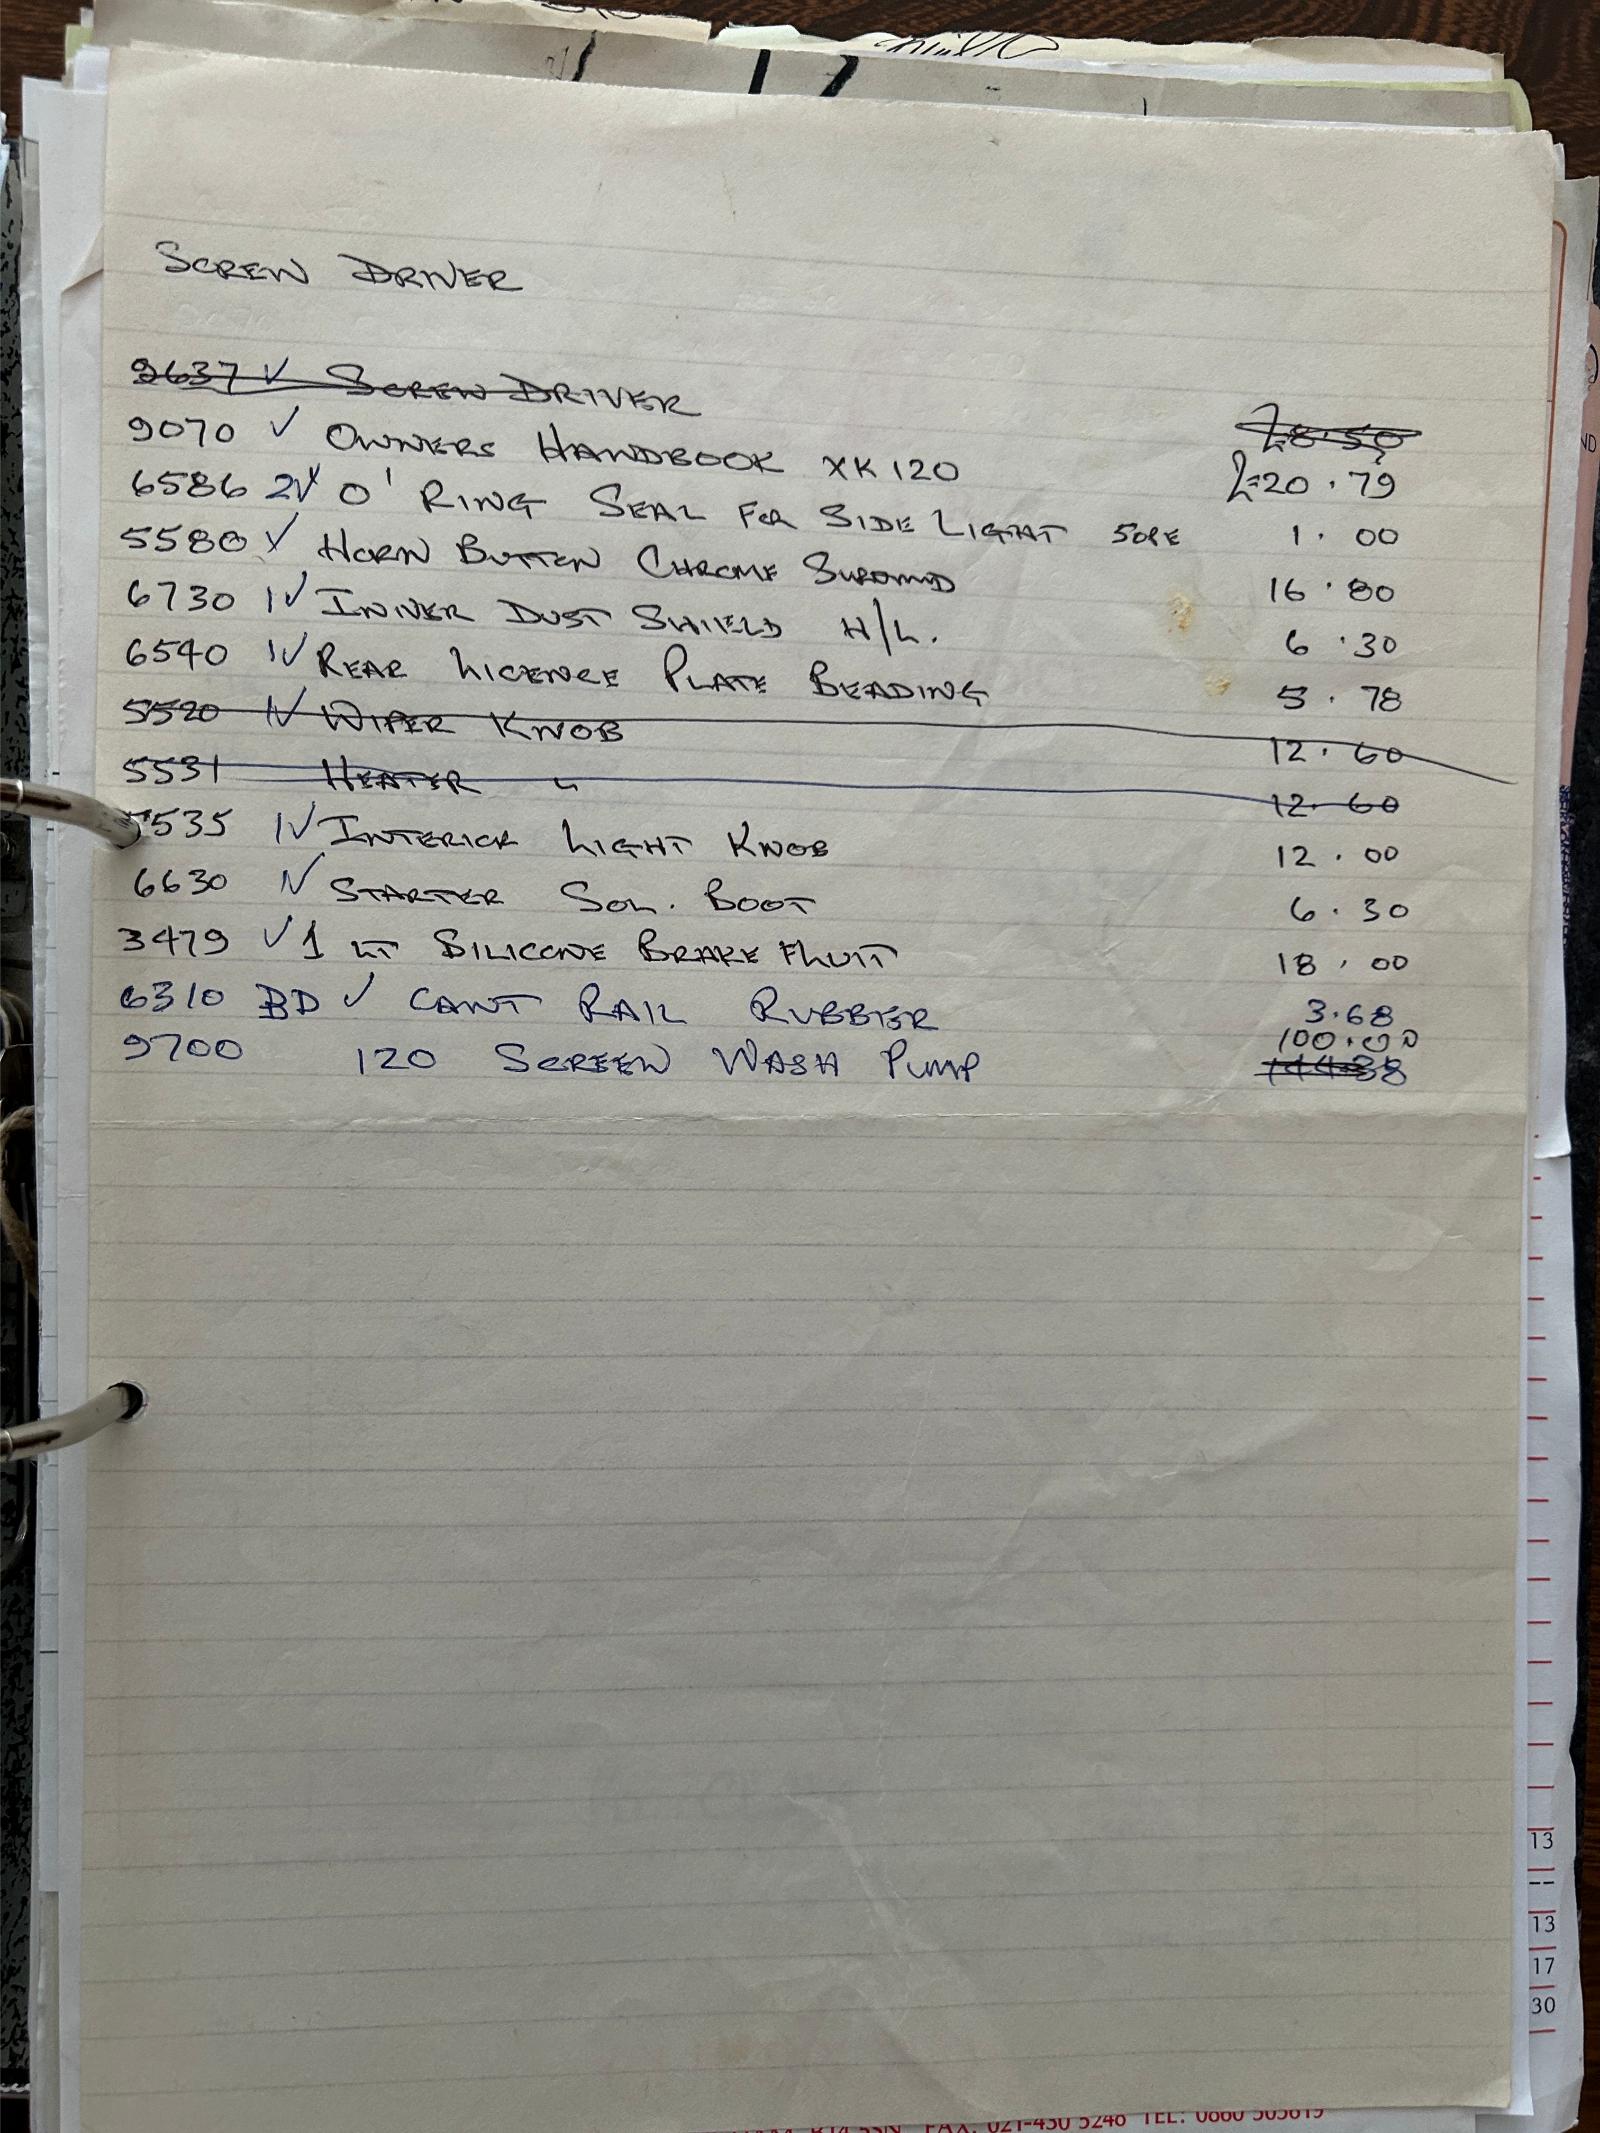 SCREW DRIVER
9637 ✓ SCREW DRIVER £8.50
9070 ✓ OWNERS HANDBOOK XK120 £20.79
6586 2✓ O' RING SEAL FOR SIDE LIGHT 50PE 1.00
5580 ✓ HORN BUTTON CHROME SUROUND 16.80
6730 1✓ INNER DUST SHIELD H/L. 6.30
6540 1✓ REAR LICENCE PLATE BEADING 5.78
5520 1✓ WIPER KNOB 12.60
5531 HEATER " 12.60
5535 1✓ INTERIOR LIGHT KNOB 12.00
6630 1✓ STARTER SOL. BOOT 6.30
3479 ✓ 1 LT SILICONE BRAKE FLUIT 18.00
6310 BD ✓ CANT RAIL RUBBER 3.68
100.00
9700 120 SCREEN WASH PUMP 144.38
ND
13
--
13
17
30
FAX: 021-430 5248 TEL: 0860 505619